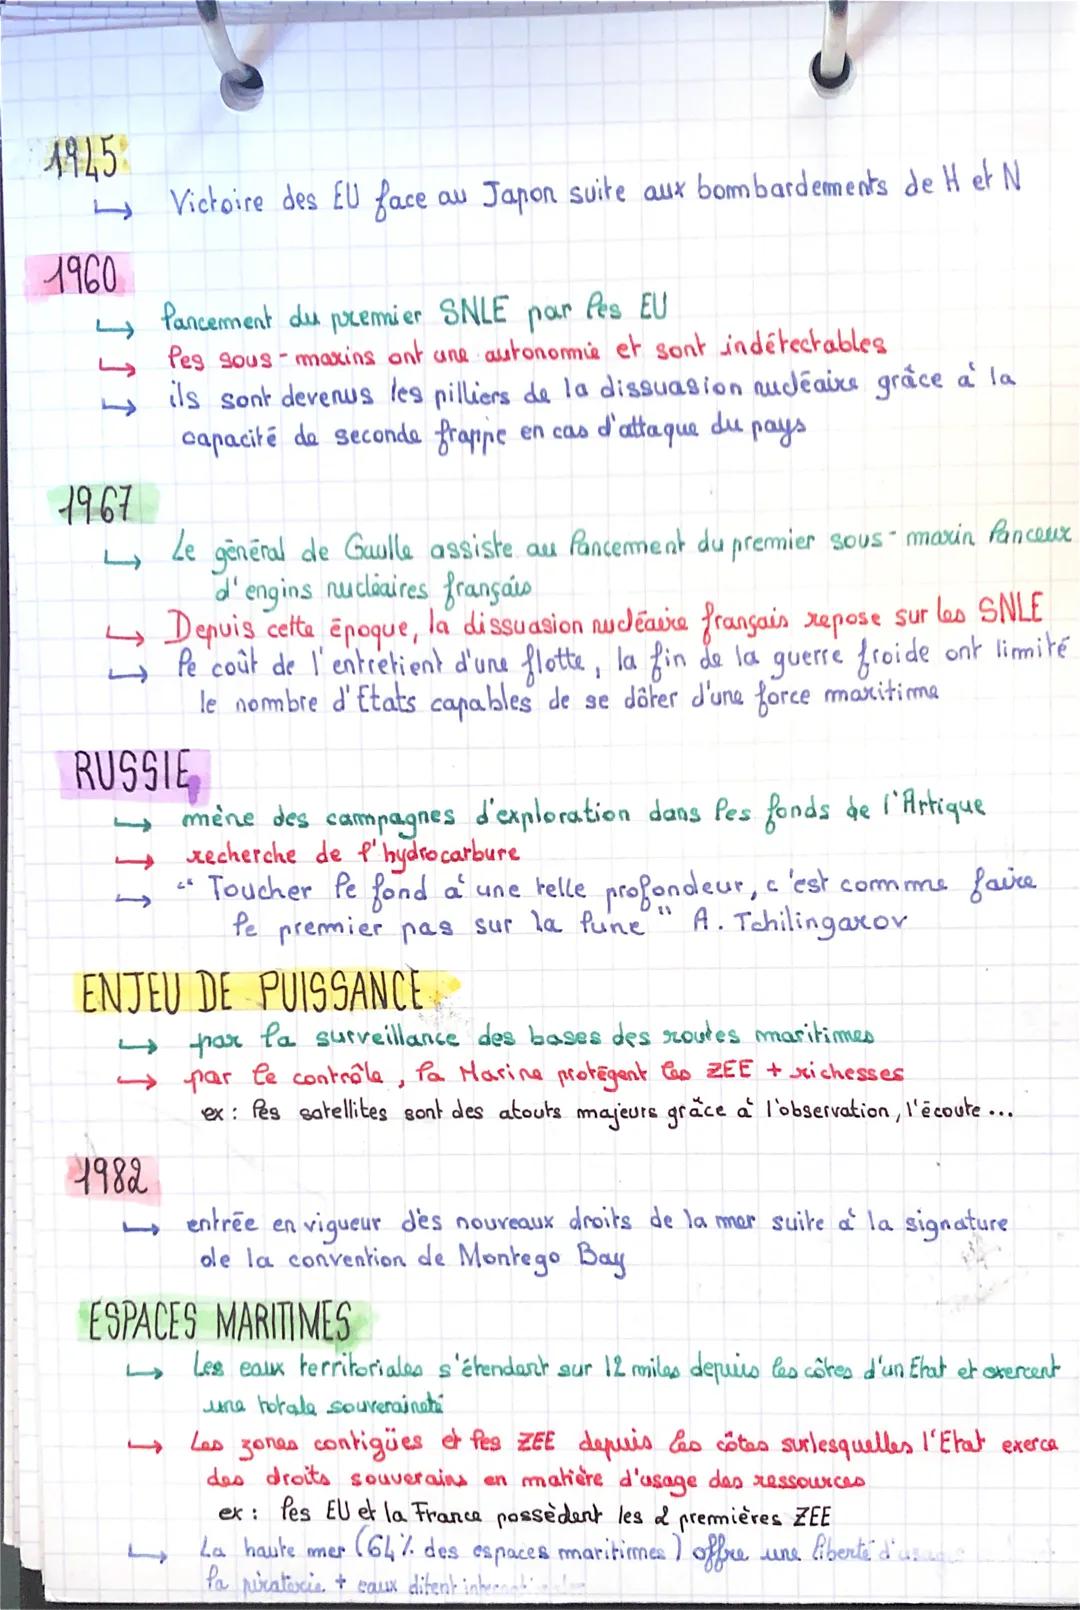 1945:
↳ Victoire des EU face au Japon suite aux bombardements de H et N
1960
↳ lancement du premier SNLE par les EU
↳ les sous-marins ont une autonomie et sont indétectables
↳ ils sont devenus les pilliers de la dissuasion nucléaire grâce à la
capacité de seconde frappe en cas d'attaque du pays
1967
↳ Le général de Gaulle assiste au lancement du premier sous-marin lanceur
d'engins nucléaires français
↳ Depuis cette époque, la dissuasion nucléaire français repose sur les SNLE
↳ le coût de l'entretient d'une flotte, la fin de la guerre froide ont limité
le nombre d'Etats capables de se dôter d'une force maritime
RUSSIE
↳ mène des campagnes d'exploration dans les fonds de l'Artique
↳ recherche de l'hydrocarbure
↳ "Toucher le fond à une telle profondeur, c'est comme faire
le premier pas sur la lune" A. Tchilingarov
ENJEU DE PUISSANCE
↳ par la surveillance des bases des routes maritimes
↳ par le contrôle, la Marine protègent les ZEE + richesses
ex : les satellites sont des atouts majeurs grâce à l'observation, l'écoute...
1982
↳ entrée en vigueur des nouveaux droits de la mer suite à la signature
de la convention de Montego Bay
ESPACES MARITIMES
↳ Les eaux territoriales s'étendant sur 12 miles depuis les côtes d'un Etat et exercent
une totale souveraineté
↳ Les zones contigües et les ZEE depuis les côtes surlesquelles l'Etat exerce
des droits souverains en matière d'usage des ressources
ex : les EU et la France possèdent les 2 premières ZEE
↳ La haute mer (64% des espaces maritimes) offre une liberté
la piraterie + eaux ditent